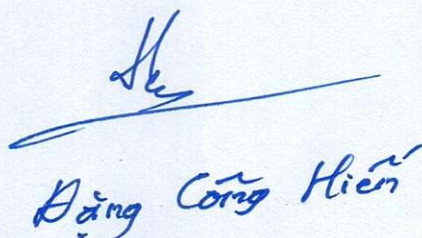 Đặng Công Hiến